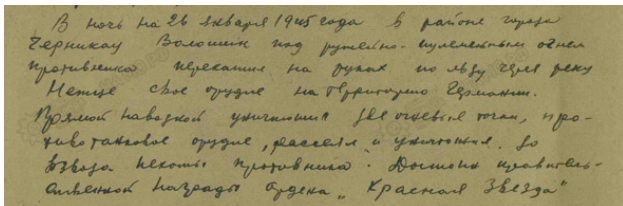 В ночь на 26 января 1945 года в районе города
Черникау Волошин под ружейно-пулеметным огнем
противника перекатил на руках по льду через реку
Нетце свое орудие на территорию Германии.
Прямой наводкой уничтожил две огневые точки, про-
тивотанковое орудие, рассеял и уничтожил до
взвода пехоты противника. Достоин правитель-
ственной награды ордена „Красная Звезда"